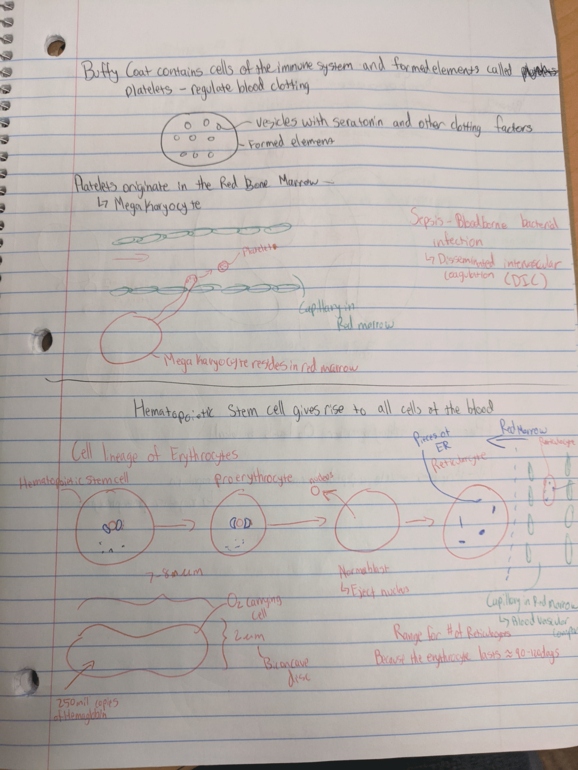 Buffy Coat contains cells of the immune system and formed elements called
platelets - regulate blood clotting
vesicles with seratonin and other clotting factors
Formed element
Platelets originate in the Red Bone Marrow
↳ Megakaryocyte
Sepsis - Bloodborne bacterial
infection
↳ Disseminated intervascular
coagulation (DIC)
Platelets
Capillary in
Red marrow
Megakaryocyte resides in red marrow
Hematopoietic Stem cell gives rise to all cells of the blood
Cell lineage of Erythrocytes
Pieces of
ER
Red Marrow
Reticulocyte
Hematopoietic Stem cell
Proerythrocyte
nucleus
Normoblast
↳ Eject nucleus
7-8um
O2 carrying
cell
2um
Biconcave
disc
250 mil copies
of Hemoglobin
Capillary in Red marrow
↳ Blood vascular
Range for # of
the erythrocyte